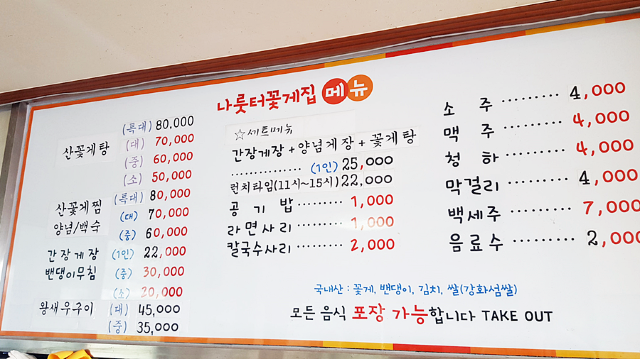 나룻터꽃게집 메뉴
산꽃게탕 (특대) 80,000
(대) 70,000
(중) 60,000
(소) 50,000
산꽃게찜 (특대) 80,000
양념/백수 (대) 70,000
(중) 60,000
간장게장 (1인) 22,000
밴댕이무침 (중) 30,000
(소) 20,000
왕새우구이 (대) 45,000
(중) 35,000
☆세트메뉴
간장게장+양념게장+꽃게탕
............... (1인) 25,000
런치타임(11시~15시) 22,000
공기밥 ........ 1,000
라면사리 ........ 1,000
칼국수사리 ........ 2,000
소주 ......... 4,000
맥주 ......... 4,000
청하 ......... 4,000
막걸리 ......... 4,000
백세주 ......... 7,000
음료수 ......... 2,000
국내산 : 꽃게, 밴댕이, 김치, 쌀(강화섬쌀)
모든 음식 포장 가능합니다 TAKE OUT